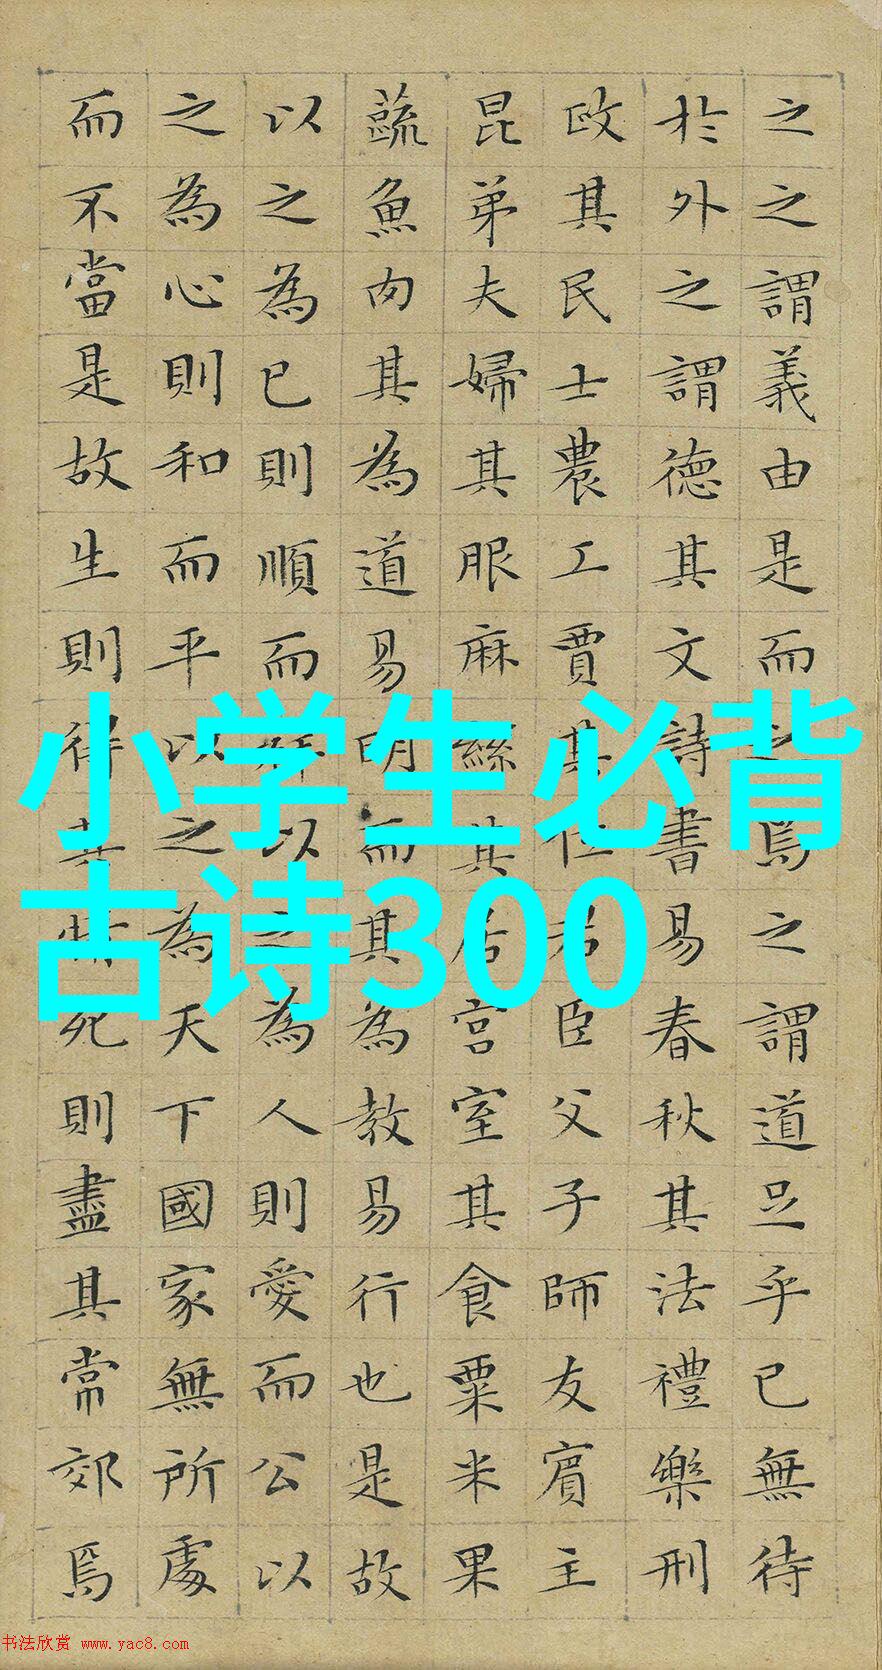 之之謂義由是而之焉之謂道足乎已無待
於外之謂德其文詩書易春秋其法禮樂刑
政其民士農工賈其位君臣父子師友賓主
昆弟夫婦其服麻絲其居宮室其食粟米果
蔬魚肉其為道易明而其為教易行也是故
以之為已則順而祥以之為人則愛而公以
之為心則和而平以之為天下國家無所處
而不當是故生則得其情死則盡其常郊焉
小学生必背
古诗300
书法欣赏 www.yac8.com